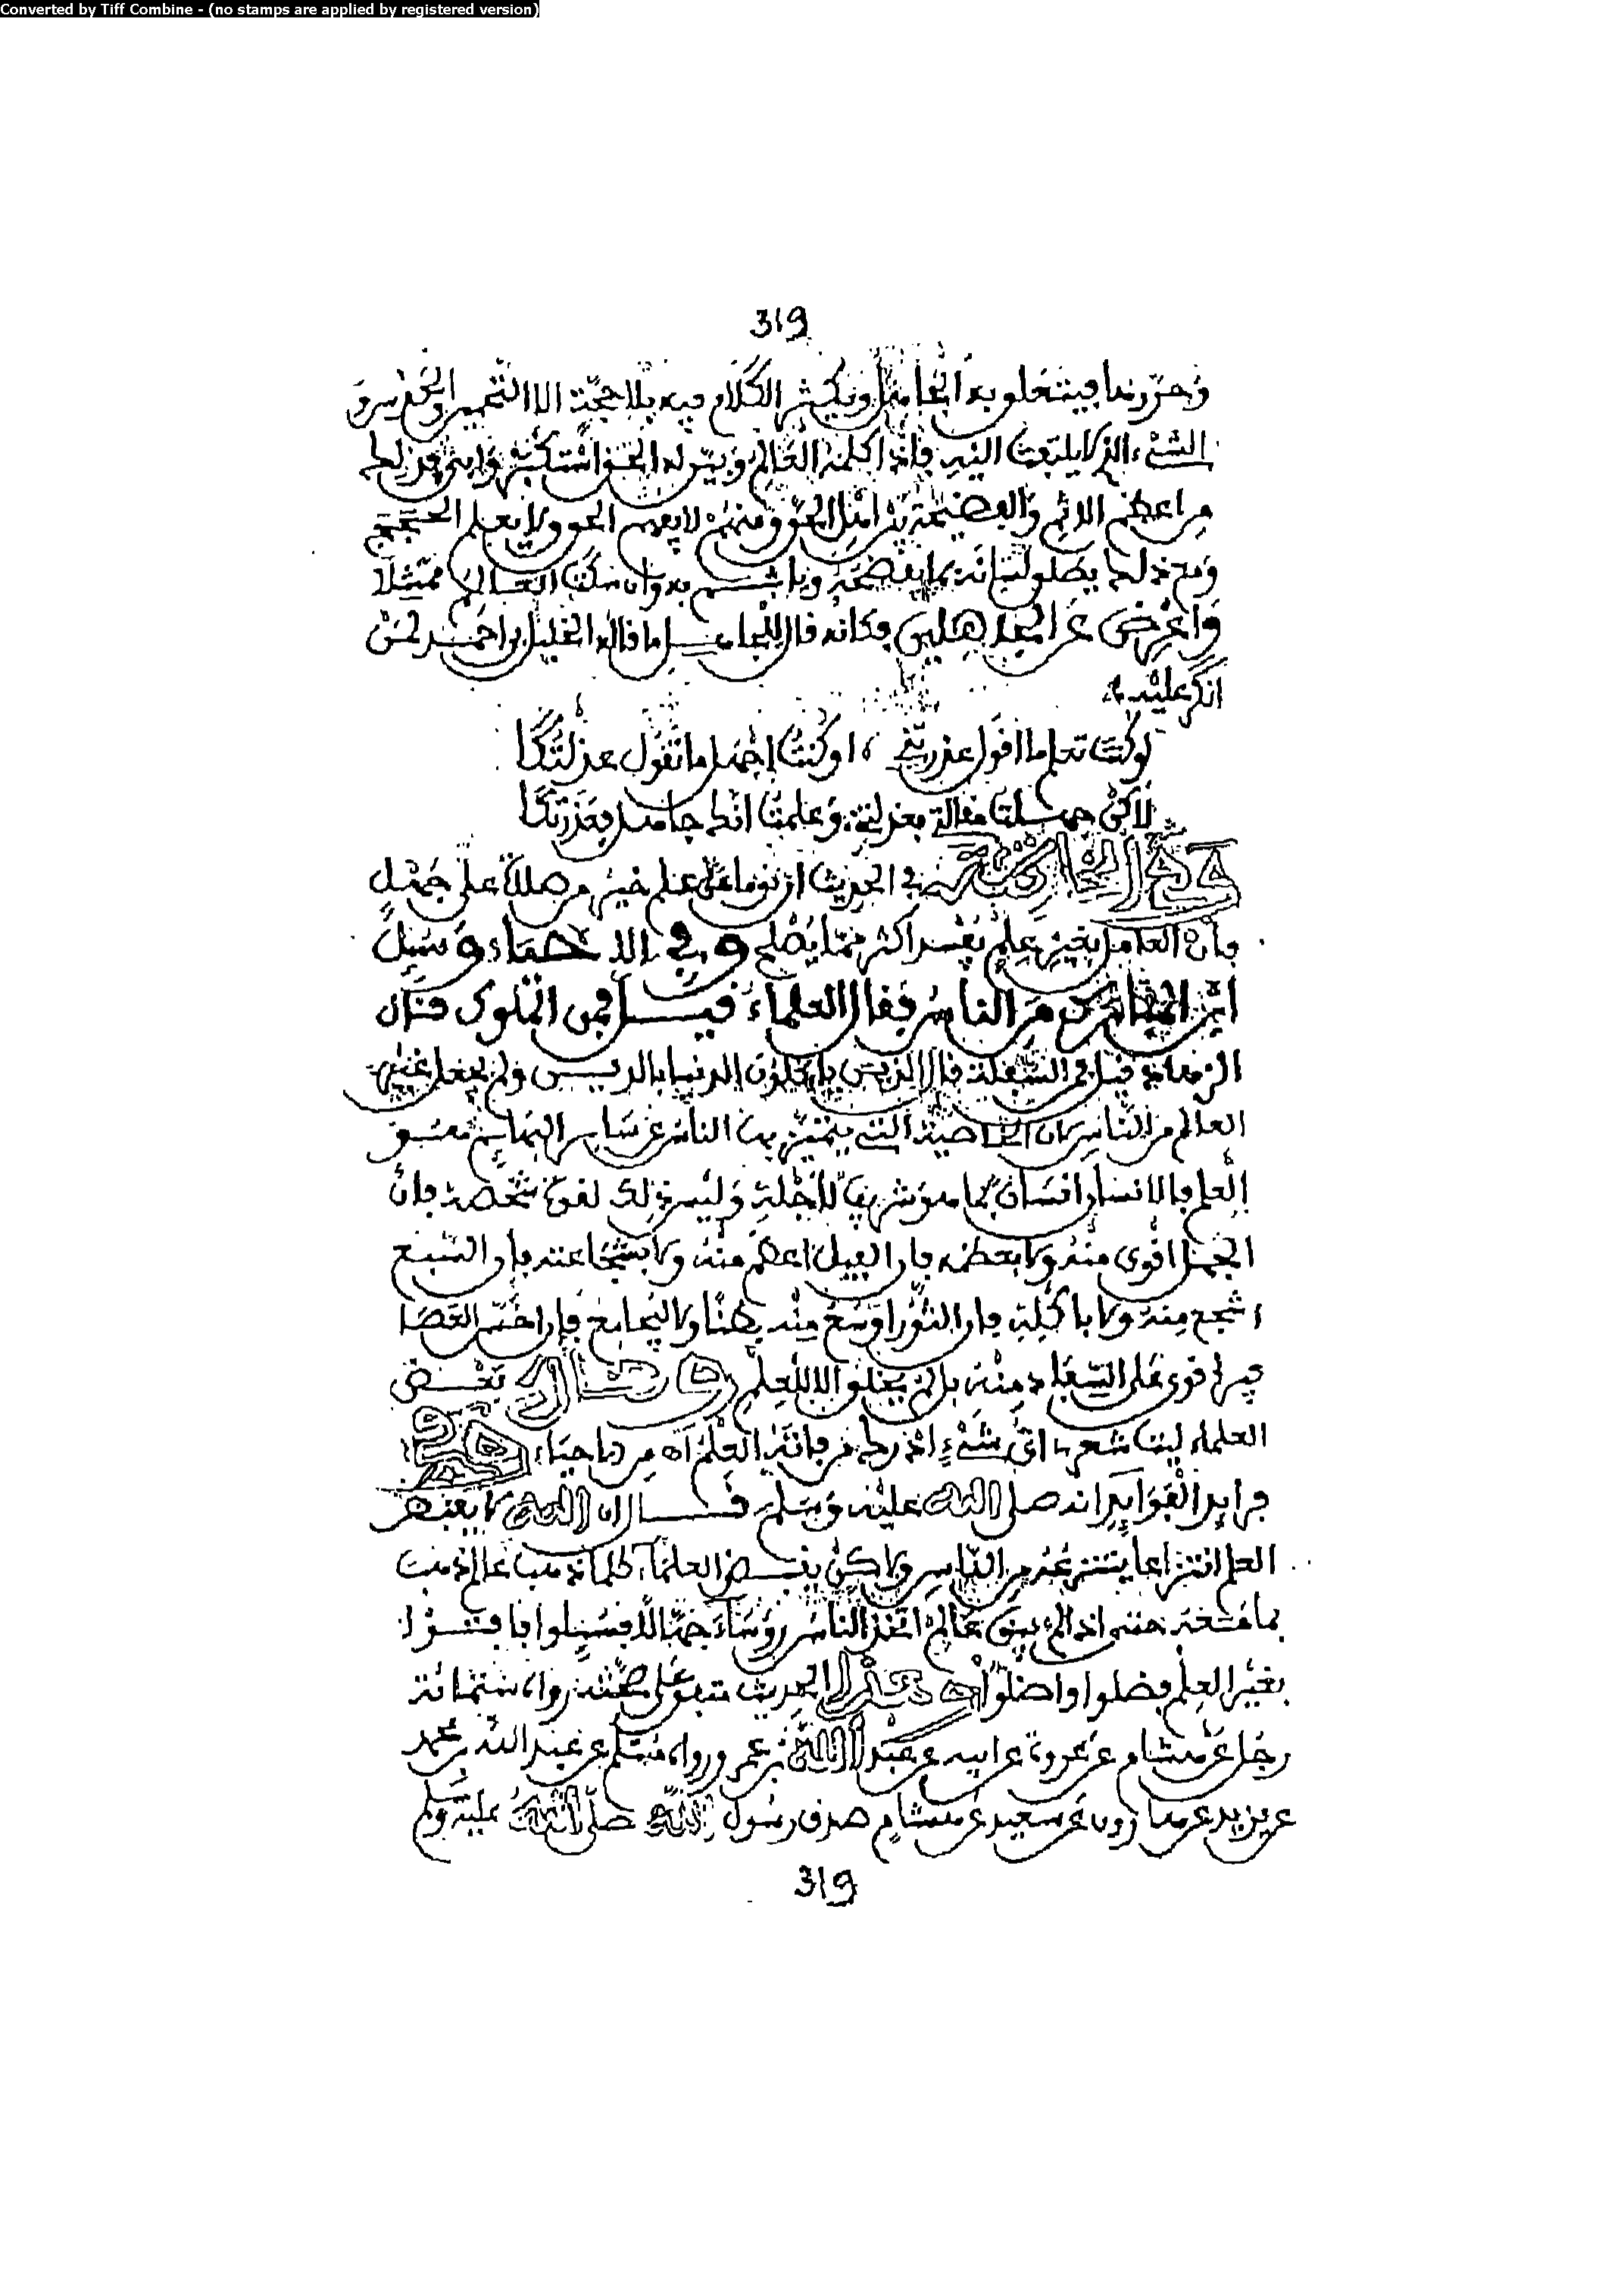 Converted by Tiff Combine - (no stamps are applied by registered version)
319
فيتعلق به الجاهل ويكثر الكلام فيه بلا حجة الا التخمير والخفر
الشيء الذي لا يلتفت اليه فاذا كلمه العالم وبين له الحق استكبر
من اعظم الاثم والفضيحة بين اهل الحق ومنهم لا يعرف الحق ولا يعلم الحجج
ومع ذلك يطلق لسانه بما يفضحه وان سكت العالم ممتثلا
وأعرض عن الجاهلين فكأنه قال للجاهل ما قاله الخليل بن احمد لمن
انكر عليه
لو كنت تعلم ما اقول عذرتني او كنت اجهل ما تقول عذلتكا
لاكن جهلت مقالتي فعذلتني وعلمت انك جاهل فعذرتكا
في الحديث ان نوما على علم خير من صلاة على جهل
فان العامل بغير علم يفسد اكثر مما يصلح وفي الاحياء وسئل
ابن المبارك من الناس فقال العلماء قيل فمن الملوك قال
الزهاد قيل فمن السفلة قال الذين ياكلون الدنيا بالدين ولم يجعل غير
العالم من الناس لان الخاصية التي يتميز بها الناس عن سائر البهائم هو
العلم فالانسان انسان بما هو شريف لأجله وليس ذلك لقوة شخصه فان
الجمل اقوى منه ولا بعظمه فان الفيل اعظم منه ولا بشجاعته فان السبع
اشجع منه ولا باكله فان الثور اوسع منه بطنا ولا ليجامع فان اخس العصا
فير اقوى على السفاد منه بل لم يخلق الا للعلم وقال بعض
العلماء ليت شعري اي شيء ادرك من فاته العلم
الفوائد انه صلى الله عليه وسلم قال ان الله لا يقبض
العلم انتزاعا ينتزعه من الناس ولاكن بقبض العلماء كلما ذهب عالم ذهب
بما معه حتى اذا لم يبق عالم اتخذ الناس رؤساء جهالا فسئلوا فافتوا
بغير العلم فضلوا واضلوا هذا الحديث متفق على صحته رواه ستمائة
رجل عن هشام عن عروة عن ابيه عن عبد الله بن عمر ورواه مسلم عن عبد الله بن محمد
عن يزيد عن هارون عن سعيد عن هشام صدق رسول الله صلى الله عليه وسلم
319